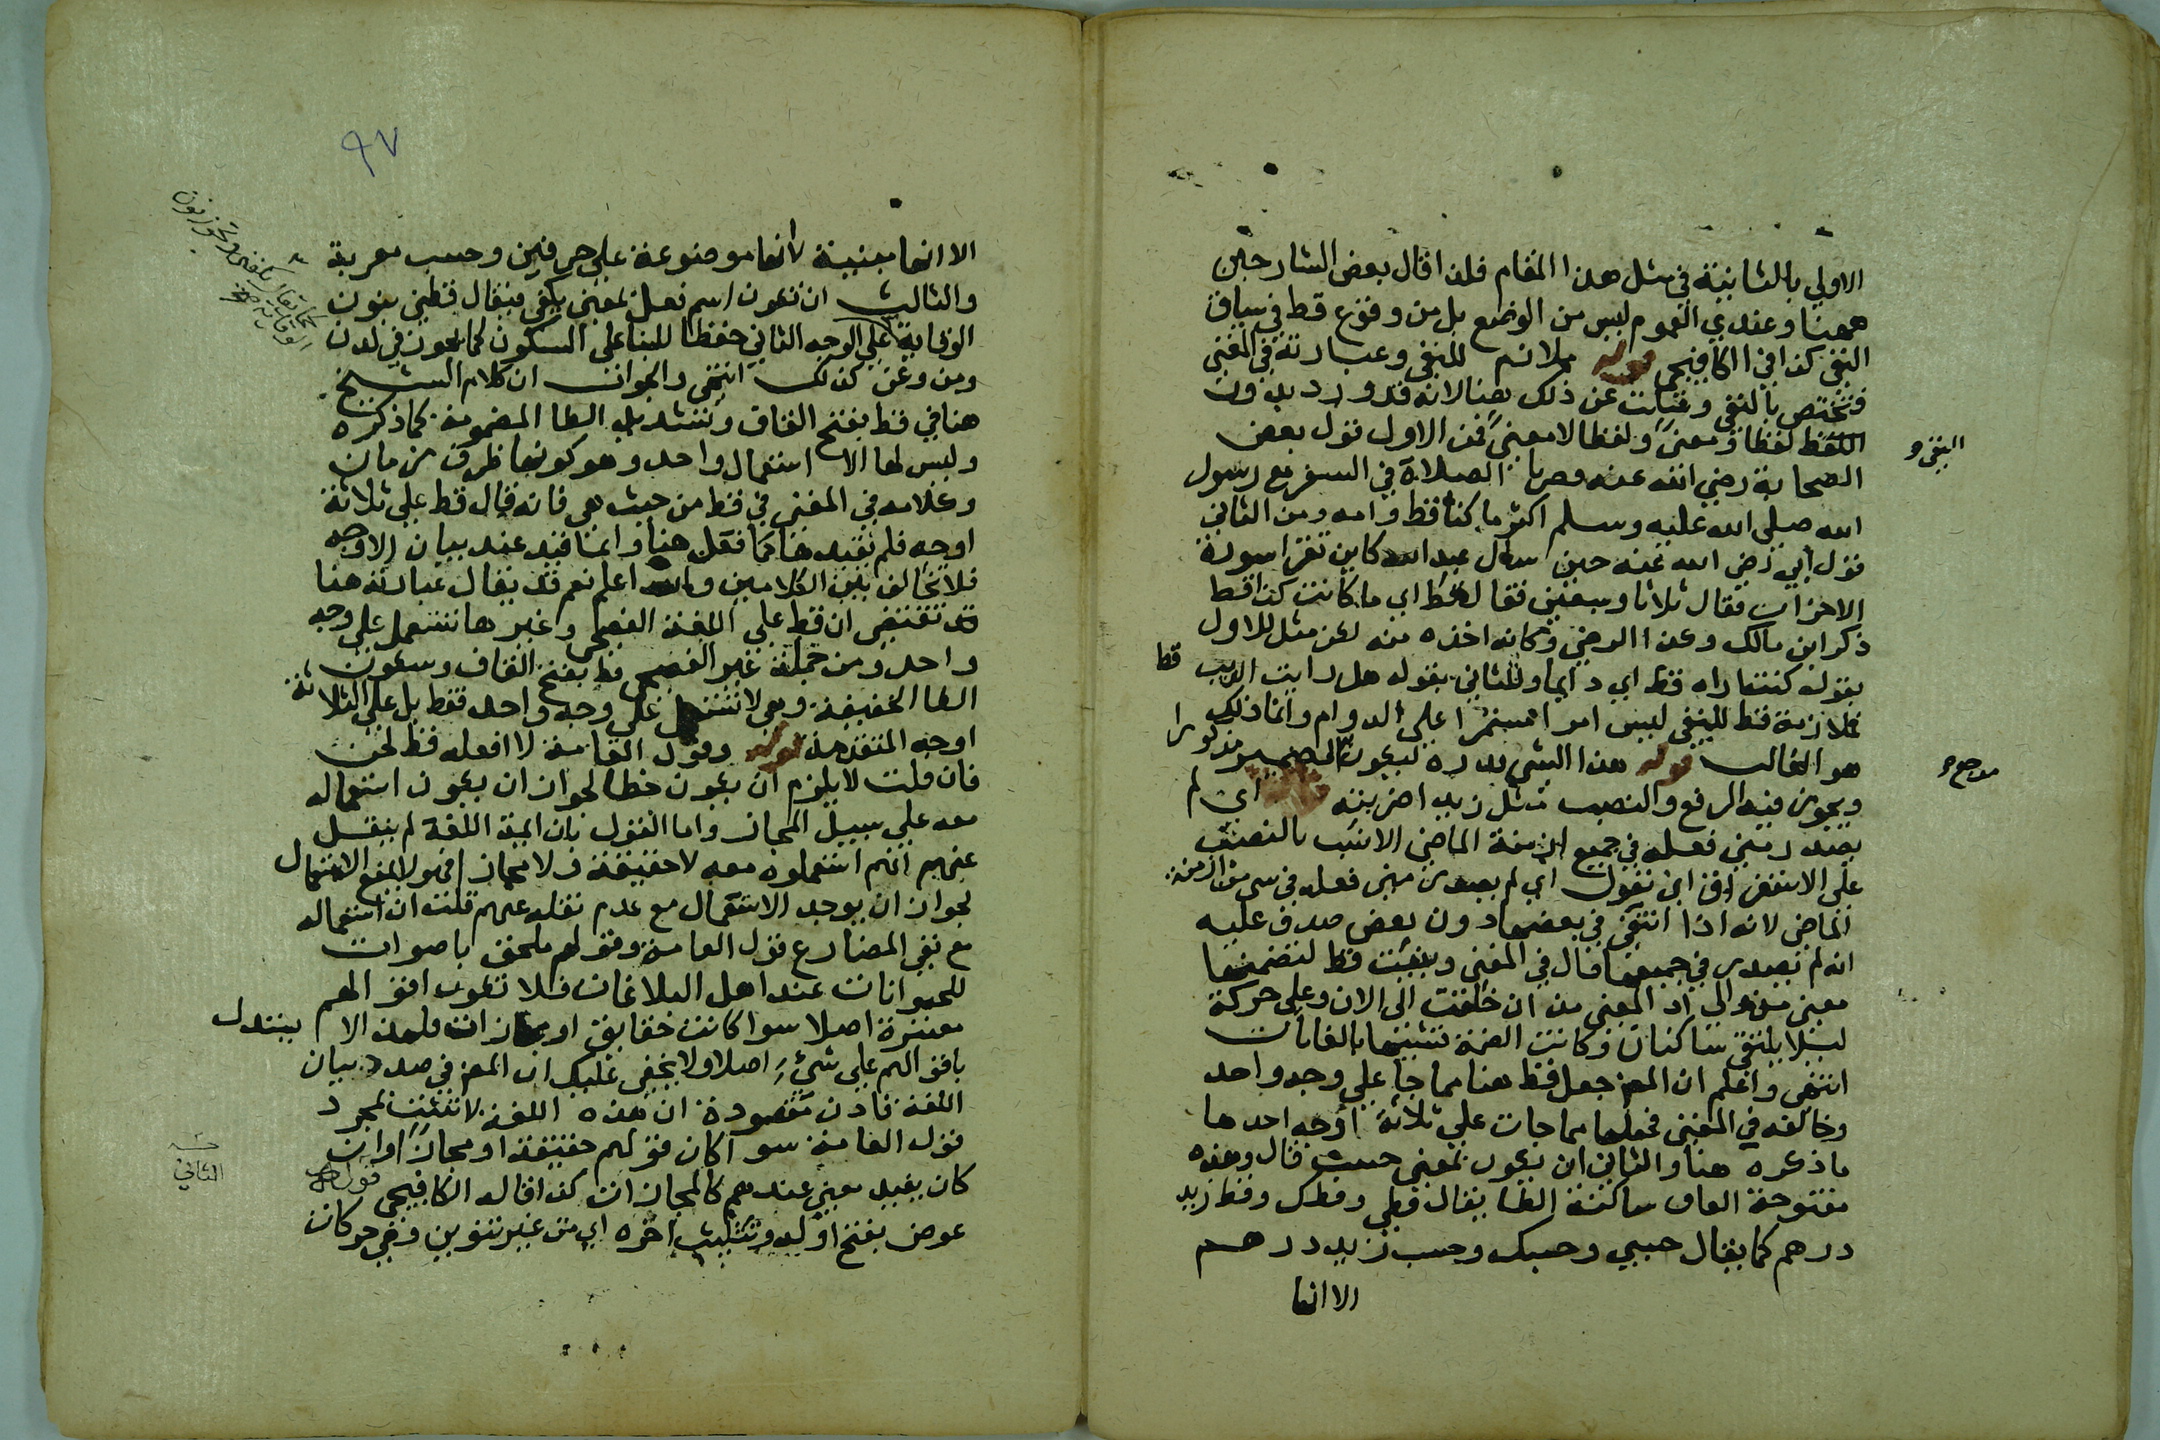 الاولي بالثانية في مثل هذا المقام فلذا قال بعض الشارحين
ههنا وعندي العموم ليس من الوضع بل من وقوع قط في سياق
النفي كذا في الكافيجي قوله ملازم للنفي وعبارته في المغني
فتختص بالنفي وعن ذلك هنا لانه قد ورد بدون
النفي و
اللفظ لفظا ومعنى ولفظا لا معنى فمن الاول قول بعض
الصحابة رضي الله عنه قصرنا الصلاة في السفر مع رسول
الله صلى الله عليه وسلم اكثر ما كنا قط وامنه ومن الثاني
قول أبي رضي الله عنه حين سأل عبد الله كاين تقرا سورة
الاحزاب فقال ثلاثا وسبعين فقال قط اي ما كانت كذا قط
ذكر ابن مالك وعن الرضي وكانه اخذه منه لكن مثل للاول
بقوله كنت اراه قط اي دايما وللثاني بقوله هل رايت الذيب قط
فملازمة قط للنفي ليس امرا مستمرا علي الدوام وانما ذلك
هو الغالب قوله هذا الشي بدره ليكون الضمير مذكورا
مرجع
ويجوز فيه الرفع والنصب مثل زيد اضربته قوله اي لم
يصدر مني فعله في جميع ازمنة الماضي الانسب بالتنصيص
علي الاستغراق ان نقول اي لم يصدر مني فعله في شي من ازمنة
الماضي لانه اذا انتفي في بعضها دون بعض صدق عليه
انه لم يصدر في جميعها قال في المغني وبنيت قط لتضمنها
معني مذ والى اذ المعني مذ ان خلقت الى الان وعلى حركة
ليلا يلتقي ساكنان وكانت الضمة تشبيها بالغايات
انتهى واعلم ان المص جعل قط هنا مما جا علي وجه واحد
وخالفه في المغني فجعلها مما جات علي ثلاثة اوجه احدها
ما ذكره هنا والثاني ان يكون بمعني حسب قال وهذه
مفتوحة القاف ساكنة الطا يقال قطي وقطك وقط زيد
درهم كما يقال حسبي وحسبك وحسب زيد درهم
الا انها
٩٧
الا انها مبنية لانها موضوعة علي حرفين وحسب معربة
والثالث ان تكون اسم فعل بمعني يكفي فيقال قطني بنون
الوقاية علي الوجه الثاني حفظا للبنا علي السكون كما يجوز في لدن
ومن وعن كذلك انتهى والجواب ان كلام الشيخ
هنا في قط بفتح القاف وتشديد الطا المضمومة كما ذكره
وليس لها الا استعمال واحد وهو كونها ظرف زمان
وكلامه في المغني في قط من حيث هي فانه قال قط علي ثلاثة
اوجه فلم نقيد هنا كما فعل هنا وانما قيد عند بيان الاوجه
فلا تخالف بين الكلامين والله اعلم نعم قد يقال عبارته هنا
تقتضي ان قط علي اللغة الفصحي وغيرها تستعمل علي وجه
واحد ومن جملة غير الفصحي قط بفتح القاف وسكون
الطا الخفيفة وهي لا تستعمل علي وجه واحد فقط بل علي الثلاثة
اوجه المتقدمة قوله وقول العامة لا افعله قط لحن
فان قلت لا يلزم ان يكون خطا لجواز ان يكون استعماله
معه علي سبيل المجاز واما القول بان ايمة اللغة لم ينقل
عنهم انهم استعملوه معه لا حقيقة ولا مجازا فهو لا يمنع الاستعمال
لجواز ان يوجد الاستعمال مع عدم نقله عنهم قلت ان استعماله
مع نفي المضارع قول العامة وقولهم ملحق باصوات
الحيوانات عند اهل البلاغات فلا تكون اقوالهم
معتبرة اصلا سوا كانت حقايق او مجازات فلهذا لا يستدل
باقوالهم علي شيء اصلا ولا يخفى عليك ان المص في صدد بيان
اللغة فاذن مقصوده ان هذه اللغة لا تثبت بمجرد
قول العامة سوا كان قولهم حقيقة او مجازا وان
كان يفيد معني عندهم كالمجازات كذا قاله الكافيجي قوله
الثاني
عوض بفتح اوله وتثليث اخره اي من غير تنوين وفي حركات